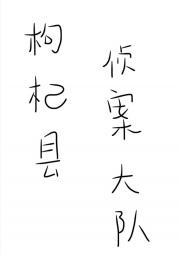 枸杞县
侦案大队